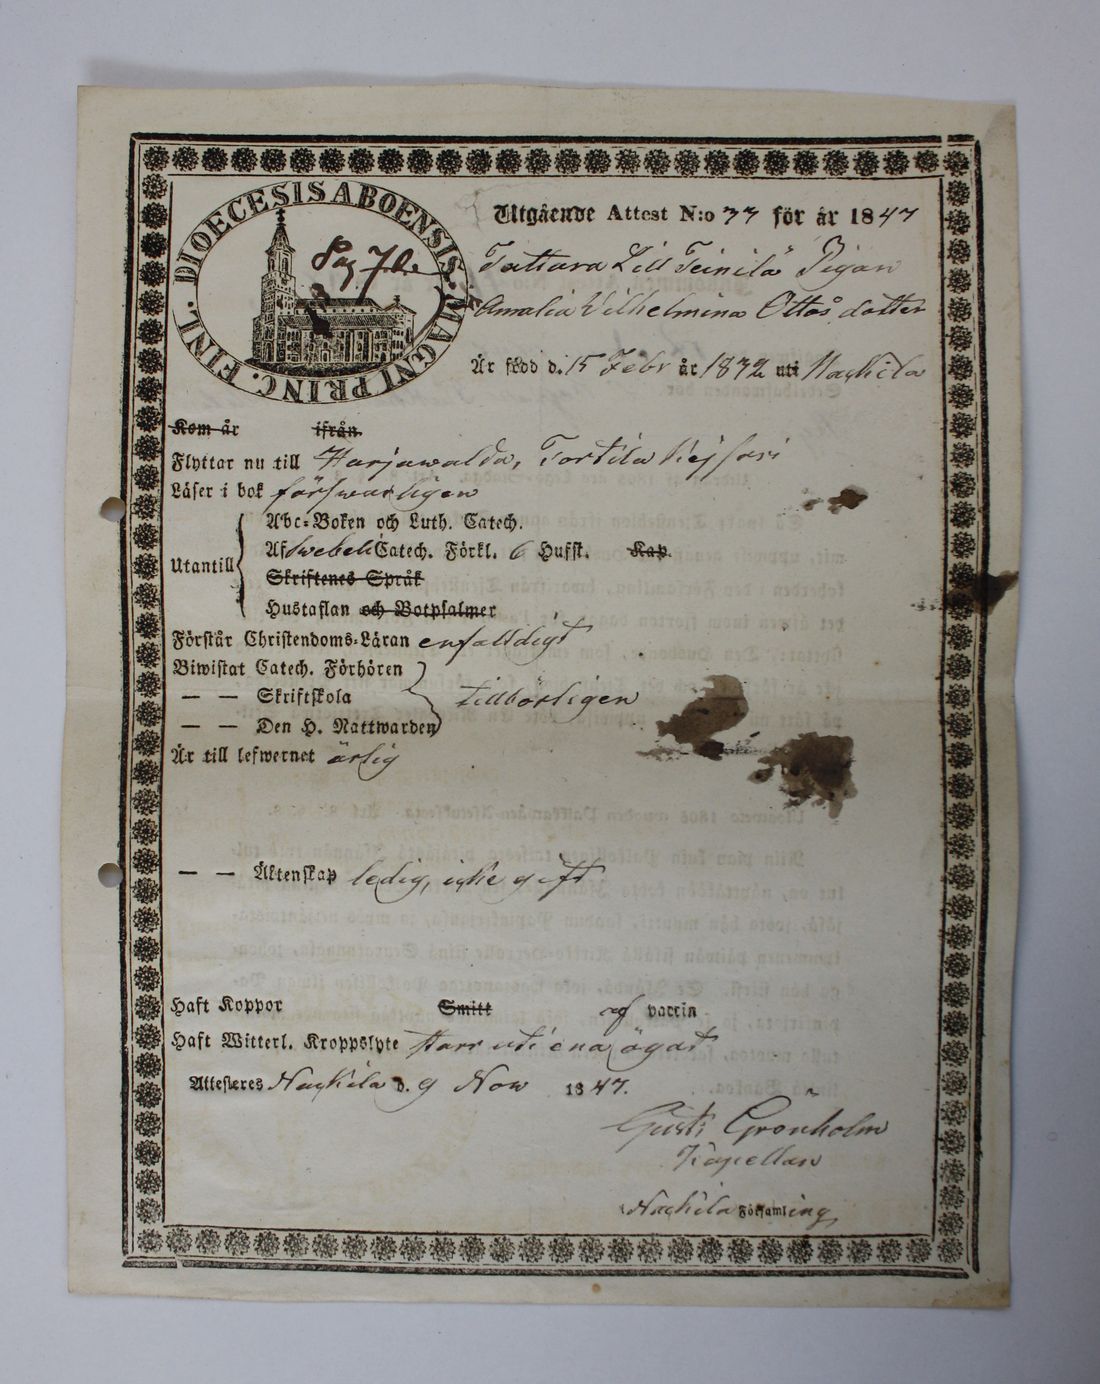 DIOECESIS ABOENSIS MAGNI PRINC. FINL.
Pag 76.
Utgående Attest N:o 33 för år 1847
Tattara Lill Teinilä Pigan
Amalia Wilhelmina Ottos dotter
Är född d. 15 Febr år 1832 uti Nackila
Kom år ifrån
Flyttar nu till Harjawalda, Torttila
Läser i bok försvarligen
Abc-Boken och Luth. Catech.
Utantill Af Swebeli Catech. Förkl. 6 Hufst. Kap.
Skriftenes Språk
Hustaflan och Botpsalmer
Förstår Christendoms-Läran enfalldigt
Biwistat Catech. Förhören
— — Skriftskola tillbörligen
— — Den H. Nattwarden
Är till lefwernet ärlig
— — Äktenskap ledig, icke gift
Haft Koppor Smitt af vaccin
Haft Witterl. Kroppslyte starr uti ena ögat
Attesteres Nackila d. 9 Nov 1847.
Gust: Grönholm
Kapellan
Nackila Församling